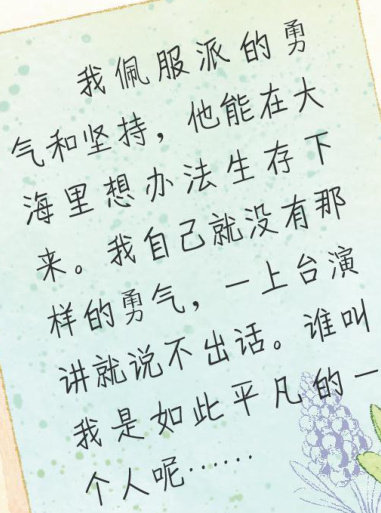 我佩服派的勇
气和坚持，他能在大
海里想办法生存下
来。我自己就没有那
样的勇气，一上台演
讲就说不出话。谁叫
我是如此平凡的一
个人呢……